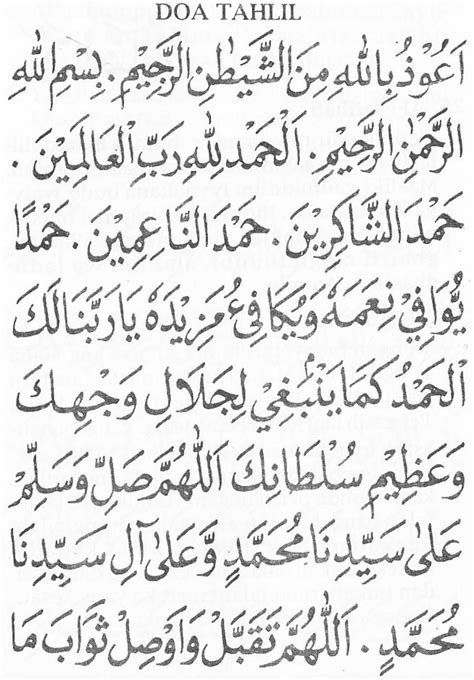 DOA TAHLIL
اَعُوْذُ بِاللهِ مِنَ الشَّيْطٰنِ الرَّجِيْمِ. بِسْمِ اللهِ
الرَّحْمٰنِ الرَّحِيْمِ. اَلْحَمْدُ لِلّٰهِ رَبِّ الْعَالَمِيْنَ.
حَمْدَ الشَّاكِرِيْنَ. حَمْدَ النَّاعِمِيْنَ. حَمْدًا
يُّوَافِيْ نِعَمَهُ وَيُكَافِئُ مَزِيْدَهُ يَا رَبَّنَا لَكَ
اَلْحَمْدُ كَمَا يَنْبَغِيْ لِجَلَالِ وَجْهِكَ
وَعَظِيْمِ سُلْطَانِكَ اَللّٰهُمَّ صَلِّ وَسَلِّمْ
عَلٰى سَيِّدِنَا مُحَمَّدٍ وَّعَلٰى آلِ سَيِّدِنَا
مُحَمَّدٍ. اَللّٰهُمَّ تَقَبَّلْ وَاَوْصِلْ ثَوَابَ مَا